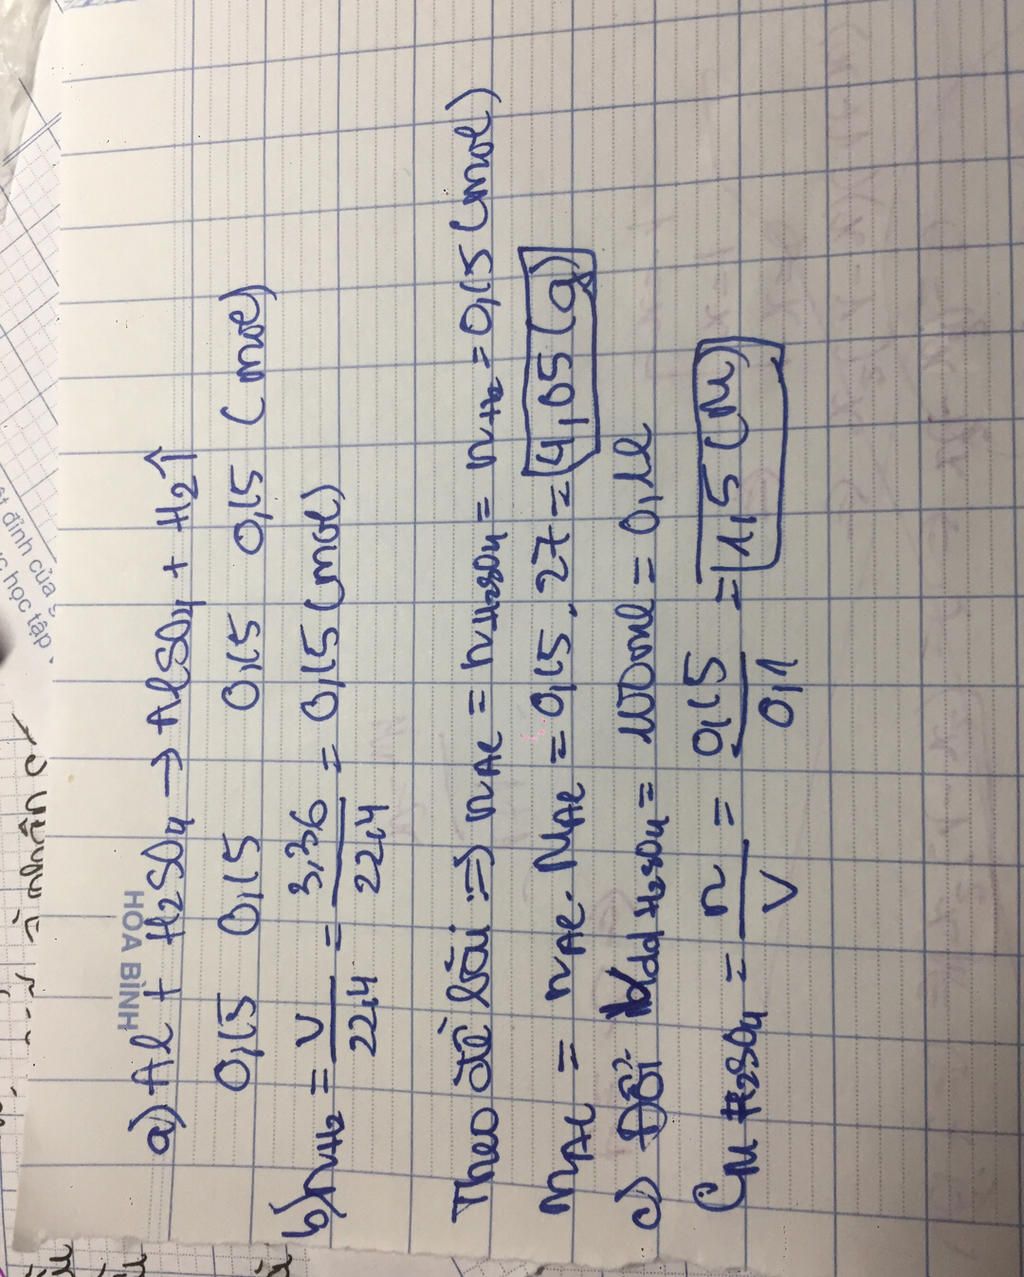 HÒA BÌNH
a) Al + H2SO4 → AlSO4 + H2↑
0,15 0,15 0,15 0,15 (mol)
b) nH2 = V/22,4 = 3,36/22,4 = 0,15 (mol)
Theo đề bài :⇒ nAl = nH2SO4 = nH2 = 0,15 (mol)
mAl = nAl . MAl = 0,15 . 27 = 4,05 (g)
c) Đổi Vdd H2SO4 = 100ml = 0,1l
CM H2SO4 = n/V = 0,15/0,1 = 1,5 (M)
đỉnh của
học tập